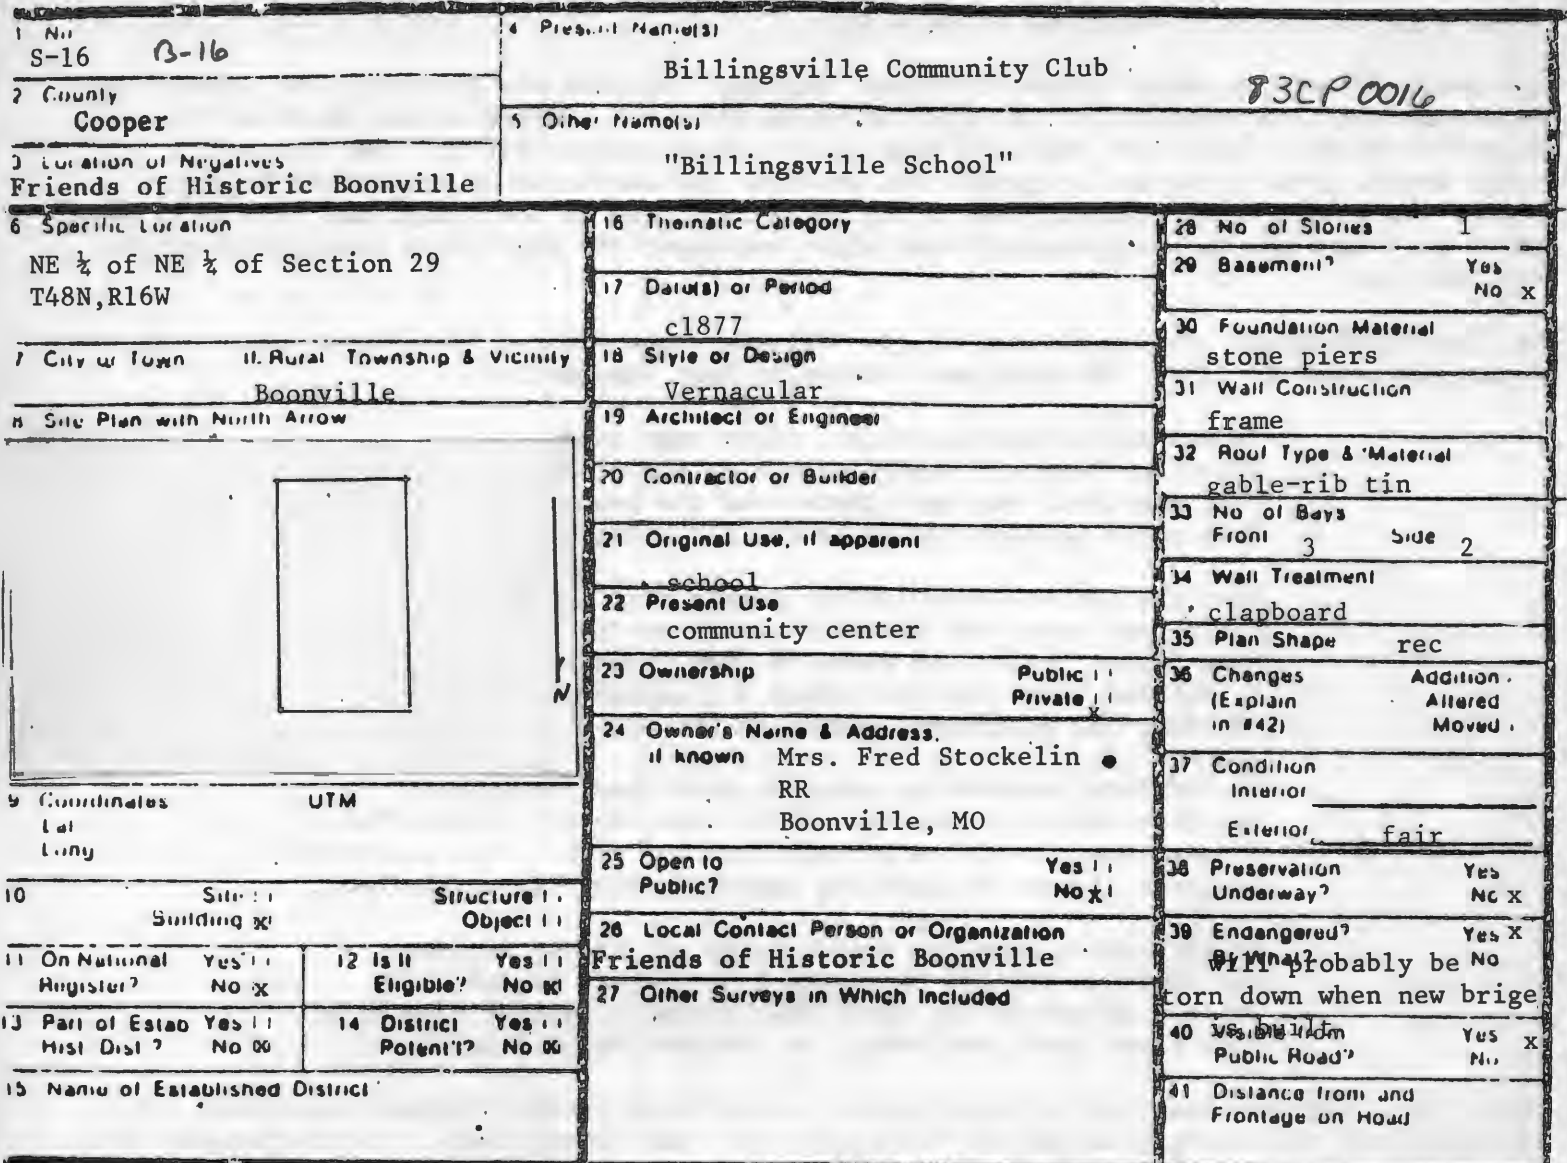 1 No
S-16 B-16
2 County
Cooper
3 Location of Negatives
Friends of Historic Boonville
4 Present Name(s)
Billingsville Community Club
83CP0016
5 Other Name(s)
"Billingsville School"
6 Specific Location
NE ¼ of NE ¼ of Section 29
T48N,R16W
7 City or Town If Rural Township & Vicinity
Boonville
8 Site Plan with North Arrow
N
9 Coordinates UTM
Lat
Long
10 Site Structure
Building x Object
11 On National Register? Yes
No x
12 Is It Eligible? Yes
No x
13 Part of Estab Hist Dist? Yes
No x
14 District Potent'l? Yes
No x
15 Name of Established District
16 Thematic Category
17 Date(s) or Period
c1877
18 Style or Design
Vernacular
19 Architect or Engineer
20 Contractor or Builder
21 Original Use, if apparent
school
22 Present Use
community center
23 Ownership Public
Private x
24 Owner's Name & Address,
if known Mrs. Fred Stockelin
RR
Boonville, MO
25 Open to Yes
Public? No x
26 Local Contact Person or Organization
Friends of Historic Boonville
27 Other Surveys in Which Included
28 No of Stories 1
29 Basement? Yes
No x
30 Foundation Material
stone piers
31 Wall Construction
frame
32 Roof Type & Material
gable-rib tin
33 No of Bays
Front 3 Side 2
34 Wall Treatment
clapboard
35 Plan Shape rec
36 Changes Addition
(Explain Altered
in #42) Moved
37 Condition
Interior
Exterior fair
38 Preservation Yes
Underway? No x
39 Endangered? Yes x
By What? No
will probably be
torn down when new brige
is built
40 Visible from Yes x
Public Road? No
41 Distance from and
Frontage on Road